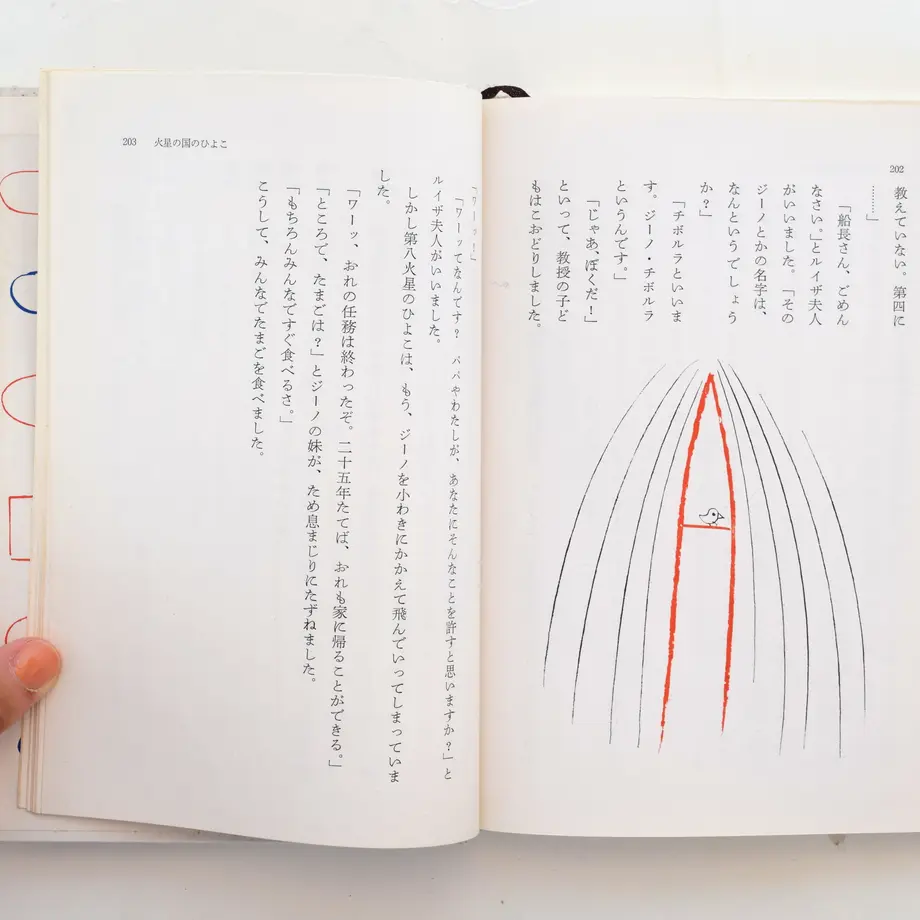 202
教えていない。第四に
………」
「船長さん、ごめん
なさい。」とルイザ夫人
がいいました。「その
ジーノとかの名字は、
なんというでしょう
か？」
「チボルラといいま
す。ジーノ・チボルラ
というんです。」
「じゃあ、ぼくだ！」
といって、教授の子ど
もはこおどりしました。
203 火星の国のひよこ
「ワーッ！」
「ワーッてなんです？ パパやわたしが、あなたにそんなことを許すと思いますか？」と
ルイザ夫人がいいました。
しかし第八火星のひよこは、もう、ジーノを小わきにかかえて飛んでいってしまっていま
した。
「ワーッ、おれの任務は終わったぞ。二十五年たてば、おれも家に帰ることができる。」
「ところで、たまごは？」とジーノの妹が、ため息まじりにたずねました。
「もちろんみんなですぐ食べるさ。」
こうして、みんなでたまごを食べました。